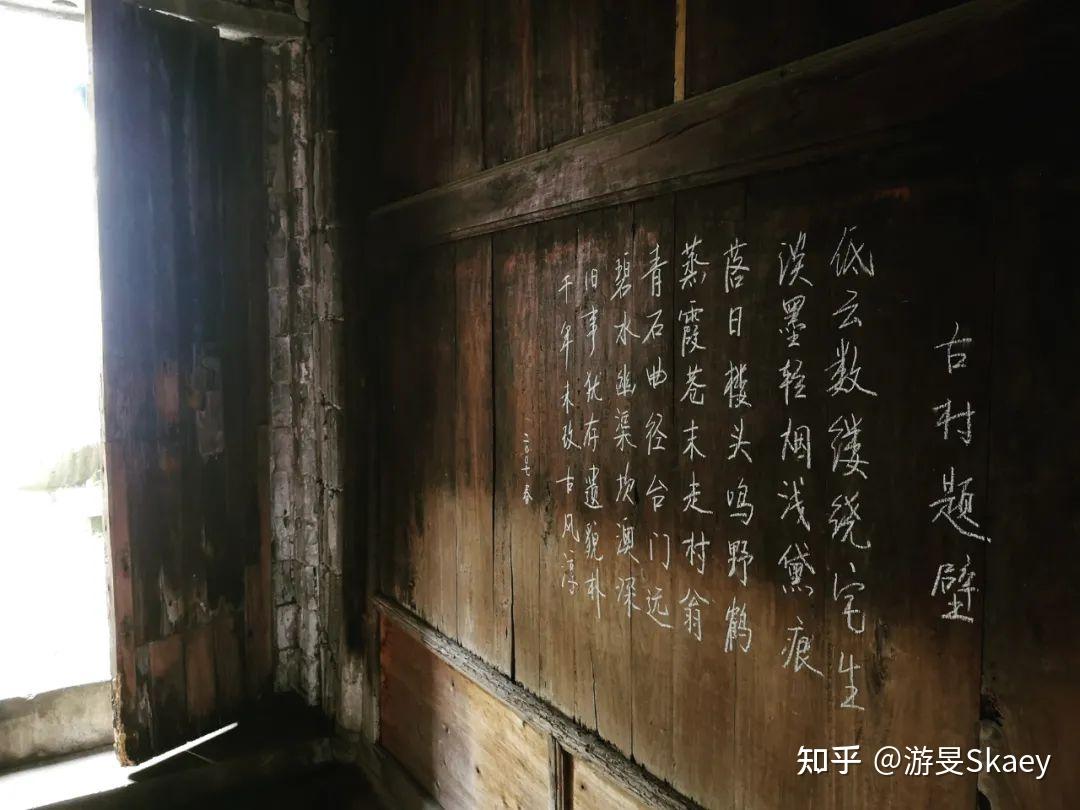 古村题壁
低云数缕绕宅生
淡墨轻烟浅黛痕
落日楼头鸣野鹤
蒸霞苍末走村翁
青石曲径台门远
碧水幽渠坎澳深
旧事犹存遗貌朴
千年未改古风淳
二〇〇七春
知乎 @游旻Skaey